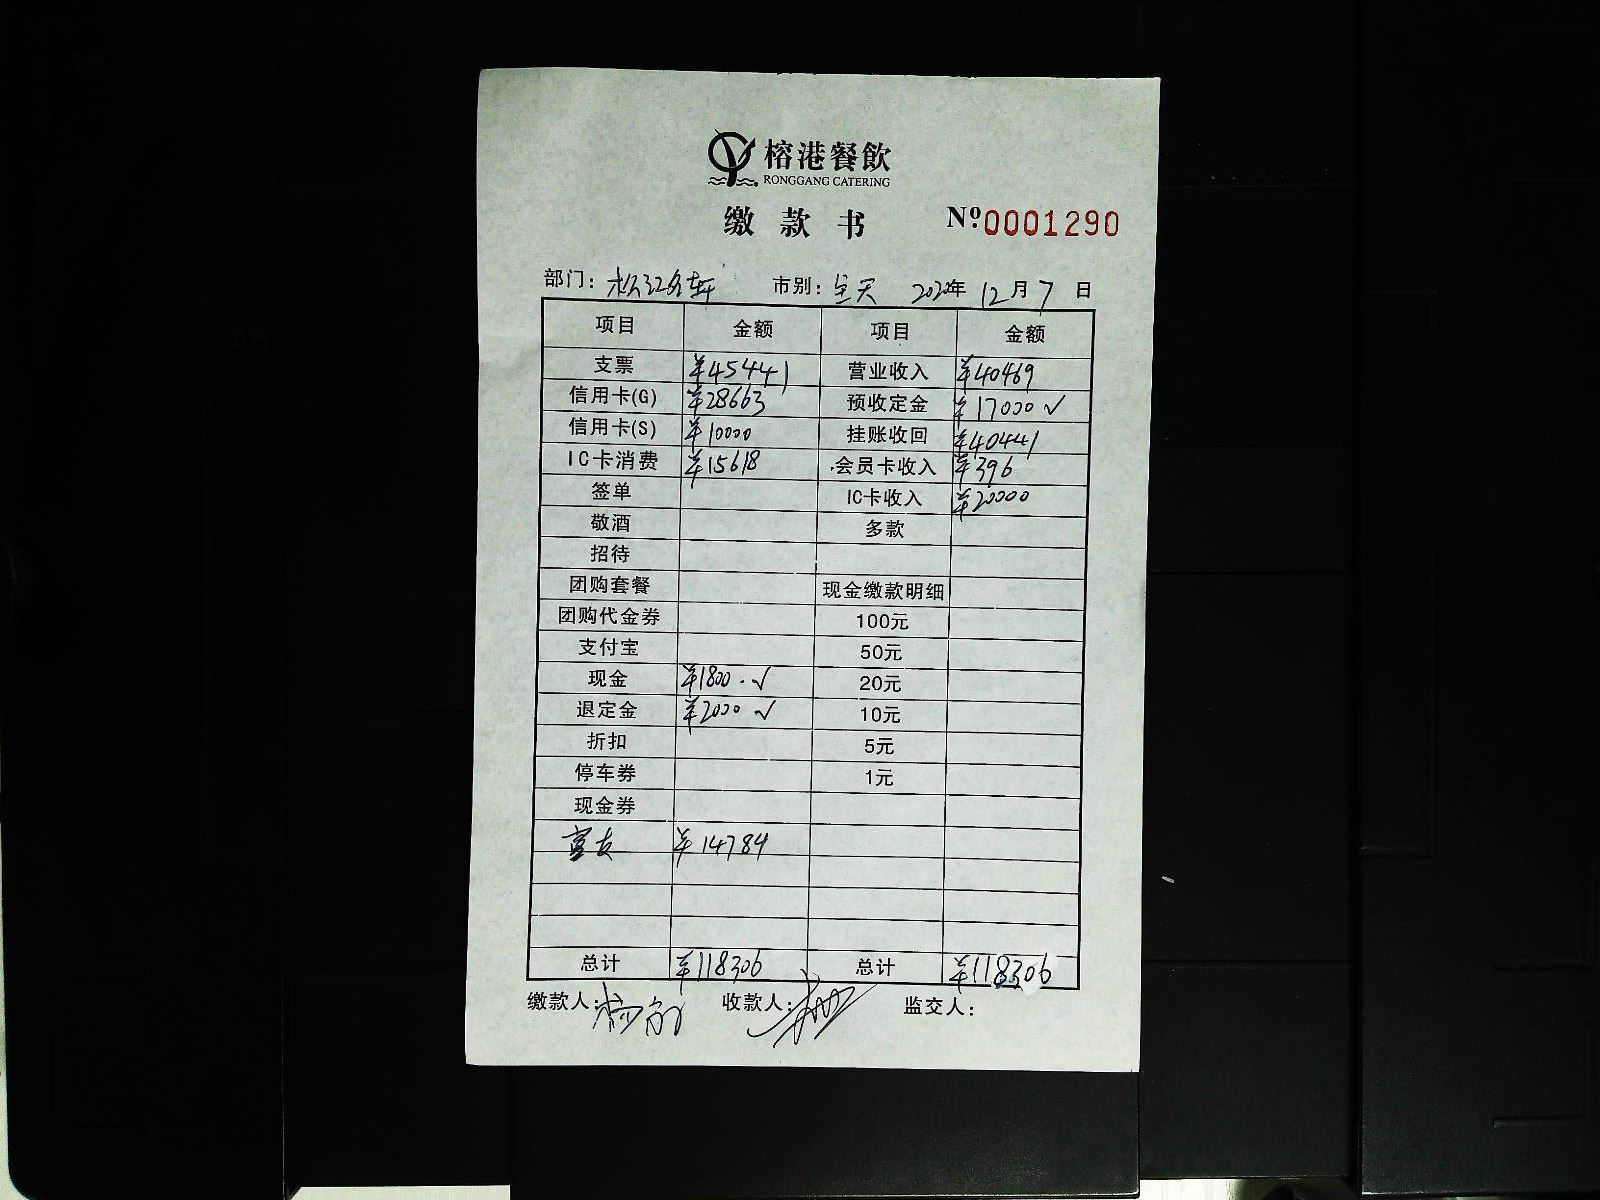 榕港餐飲
RONGGANG CATERING
缴款书 Nº:0001290
部门: 松江名轩 市别: 全天 2020年 12月 7日
项目 金额 项目 金额
支票 ¥45441 营业收入 ¥40469
信用卡(G) ¥28663 预收定金 ¥17000 √
信用卡(S) ¥10000 挂账收回 ¥40441
IC卡消费 ¥15618 会员卡收入 ¥396
签单 IC卡收入 ¥20000
敬酒 多款
招待
团购套餐 现金缴款明细
团购代金券 100元
支付宝 50元
现金 ¥1800. √ 20元
退定金 ¥2000 √ 10元
折扣 5元
停车券 1元
现金券
富友 ¥14784
总计 ¥118306 总计 ¥118306
缴款人: 收款人: 监交人: